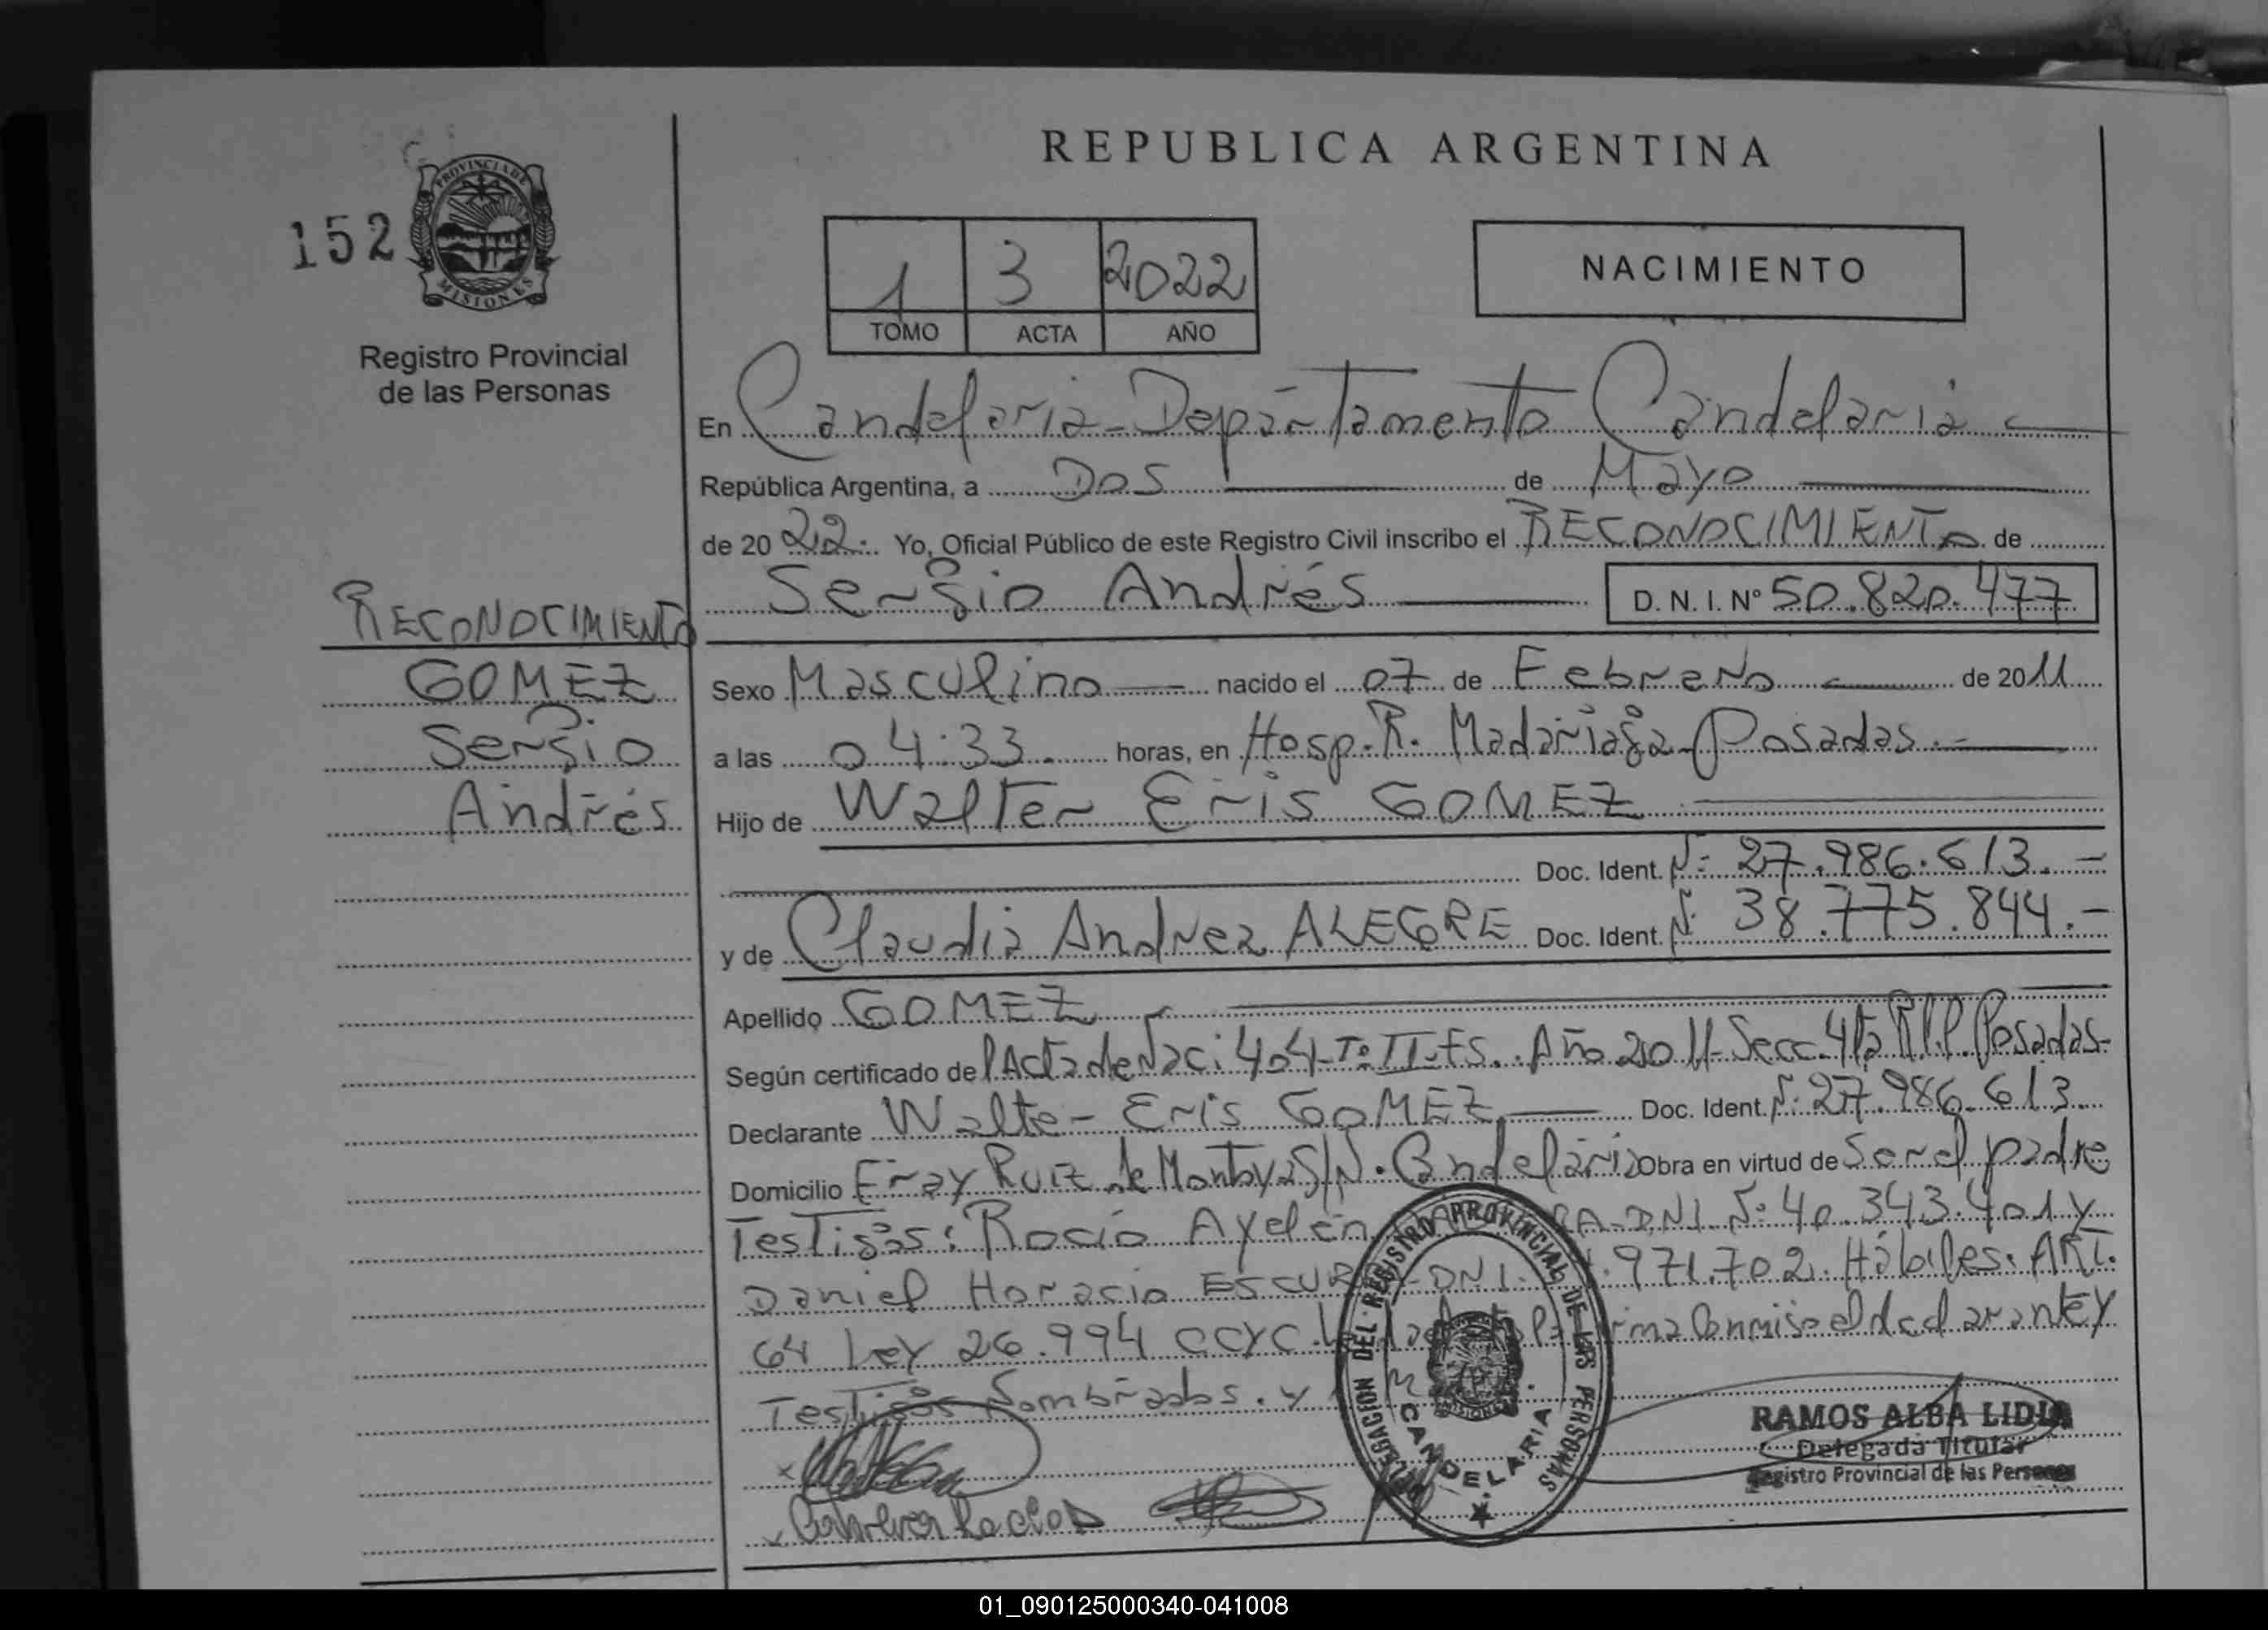 REPUBLICA ARGENTINA
152
PROVINCIA DE
MISIONES
Registro Provincial
de las Personas
1 3 2022
TOMO ACTA AÑO
NACIMIENTO
En Candelaria - Departamento Candelaria
República Argentina, a Dos de Mayo
de 2022. Yo, Oficial Público de este Registro Civil inscribo el RECONOCIMIENTO de
Sergio Andrés D. N. I. Nº 50.820.477
RECONOCIMIENTO
GOMEZ
Sergio
Andrés
Sexo Masculino nacido el 07 de Febrero de 2011
a las 04:33. horas, en Hosp. R. Madariaga - Posadas.-
Hijo de Walter Eris GOMEZ
Doc. Ident. Nº 27.986.613.-
y de Claudia Andrea ALEGRE Doc. Ident. Nº 38.775.844.-
Apellido GOMEZ
Según certificado del Acta de Naci: 404 - Tº II - Es. Año 2011 - Secc. 4ta R.P.P. Posadas-
Declarante Walter Eris GOMEZ Doc. Ident. Nº 27.986.613.
Domicilio Fray Ruiz de Montoya S/N. Candelaria Obra en virtud de Ser el padre
Testigos: Rocío Ayelén RA - DNI. Nº 40.343.401 y
Daniel Horacio ESCU DNI. .971.702. Hábiles. ART.
64 Ley 26.994 CCYC. firma Conmigo el declarante y
Testigos Nombrados. y
DELEGACION DEL REGISTRO PROVINCIAL DE LAS PERSONAS
CANDELARIA
RAMOS ALBA LIDIA
Delegada Titular
Registro Provincial de las Personas
01_090125000340-041008